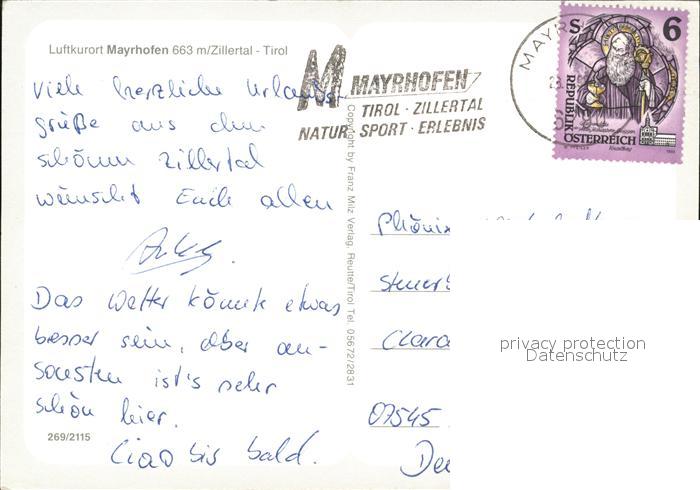 Luftkurort Mayrhofen 663 m/Zillertal - Tirol
Viele herzliche Urlaubs-
grüße aus dem
schönen Zillertal
wünscht Euch allen
Das Wetter könnte etwas
besser sein, aber an-
sonsten ist's sehr
schön hier.
Ciao bis bald.
269/2115
Copyright by Franz Milz Verlag, Reutte/Tirol Tel. 05672/2831
M MAYRHOFEN
TIROL · ZILLERTAL
NATUR · SPORT · ERLEBNIS
MAYR
S 6
REPUBLIK
ÖSTERREICH
Phönix
Steuerb
Clara
07545
Deu
privacy protection
Datenschutz